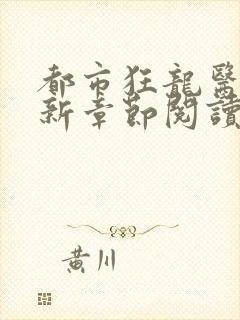 都市狂龍醫
新章節閱讀
黃川